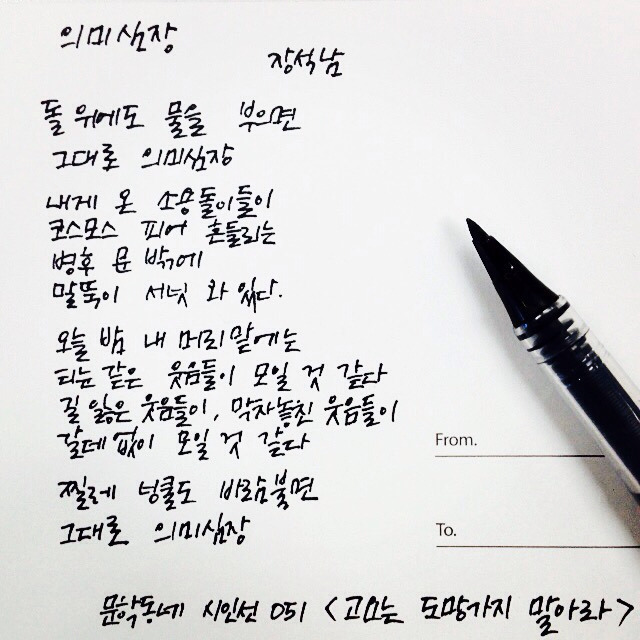 의미심장
장석남
돌 위에도 물을 부으면
그대로 의미심장
내게 온 소용돌이들이
코스모스 피어 흔들리는
병후 문 밖에
말뚝이 서넛 와 있다.
오늘 밤 내 머리맡에는
티눈 같은 웃음들이 모일 것 같다
길 잃은 웃음들이, 막차 놓친 웃음들이
갈데 없이 모일 것 같다
찔레 넝쿨도 바람불면
그대로 의미심장
From.
To.
문학동네 시인선 051 <고요는 도망가지 말아라>